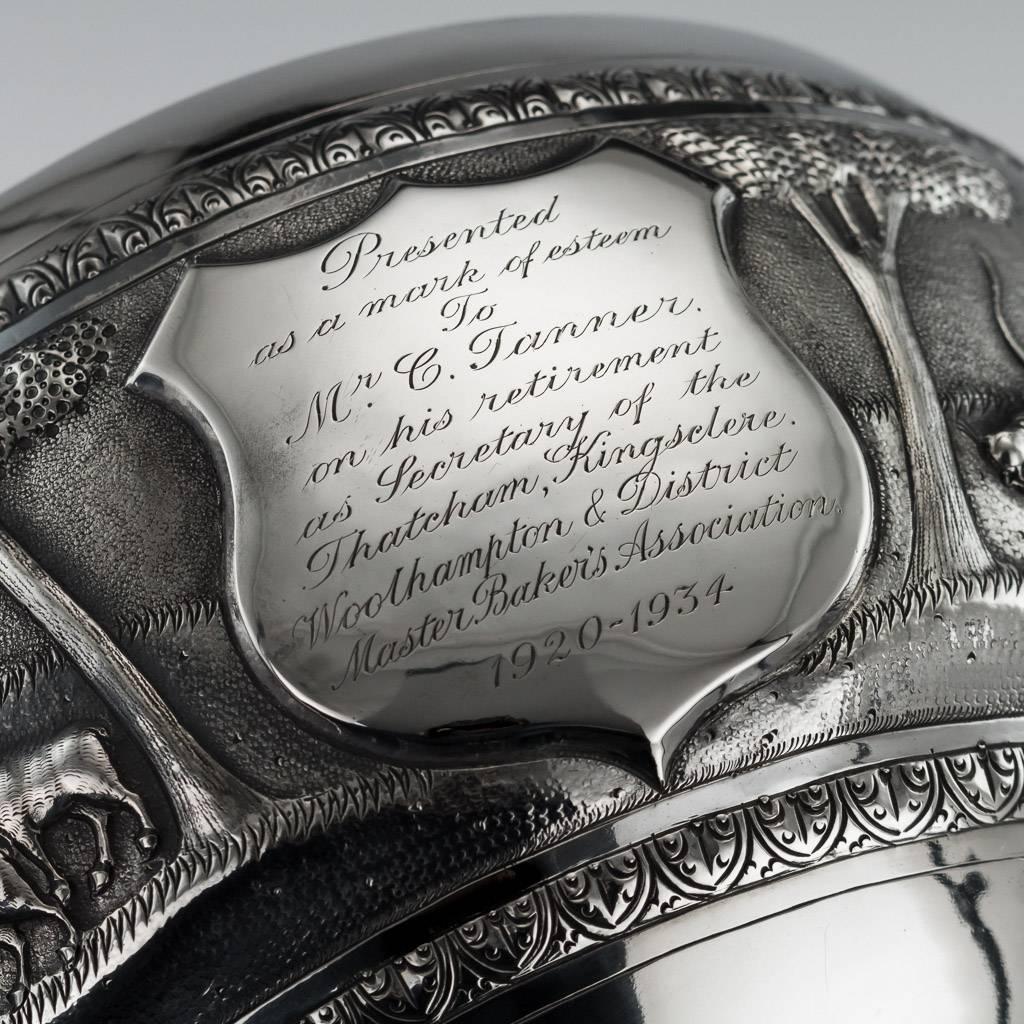 Presented
as a mark of esteem
To
Mr. C. Tanner.
on his retirement
as Secretary of the
Thatcham, Kingsclere.
Woolhampton & District
Master Baker's Association.
1920-1934